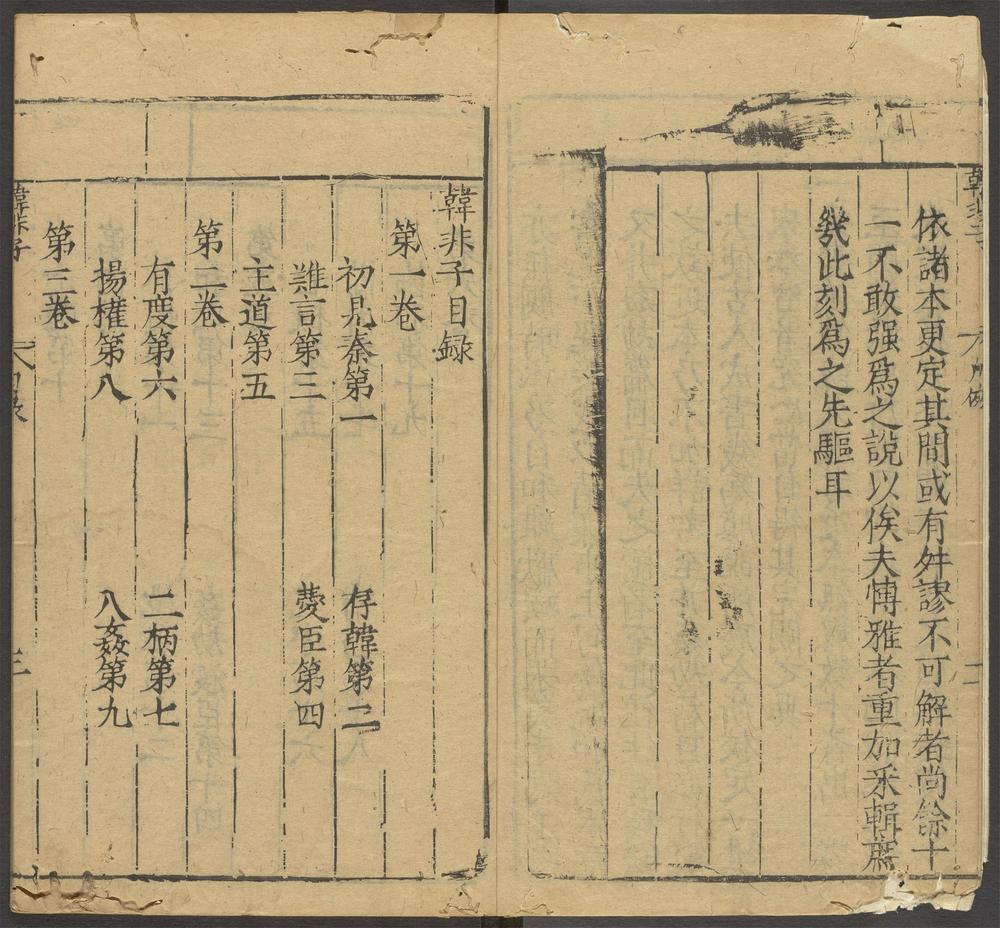 依諸本更定其間或有舛謬不可解者尚餘十
一不敢强爲之說以俟夫愽雅者重加采輯庶
㡬此刻爲之先驅耳
韓非子目録
第一卷
初見秦第一 存韓第二
難言第三 愛臣第四
主道第五
第二卷
有度第六 二柄第七
揚權第八 八姦第九
第三卷
韓非子 目録 三